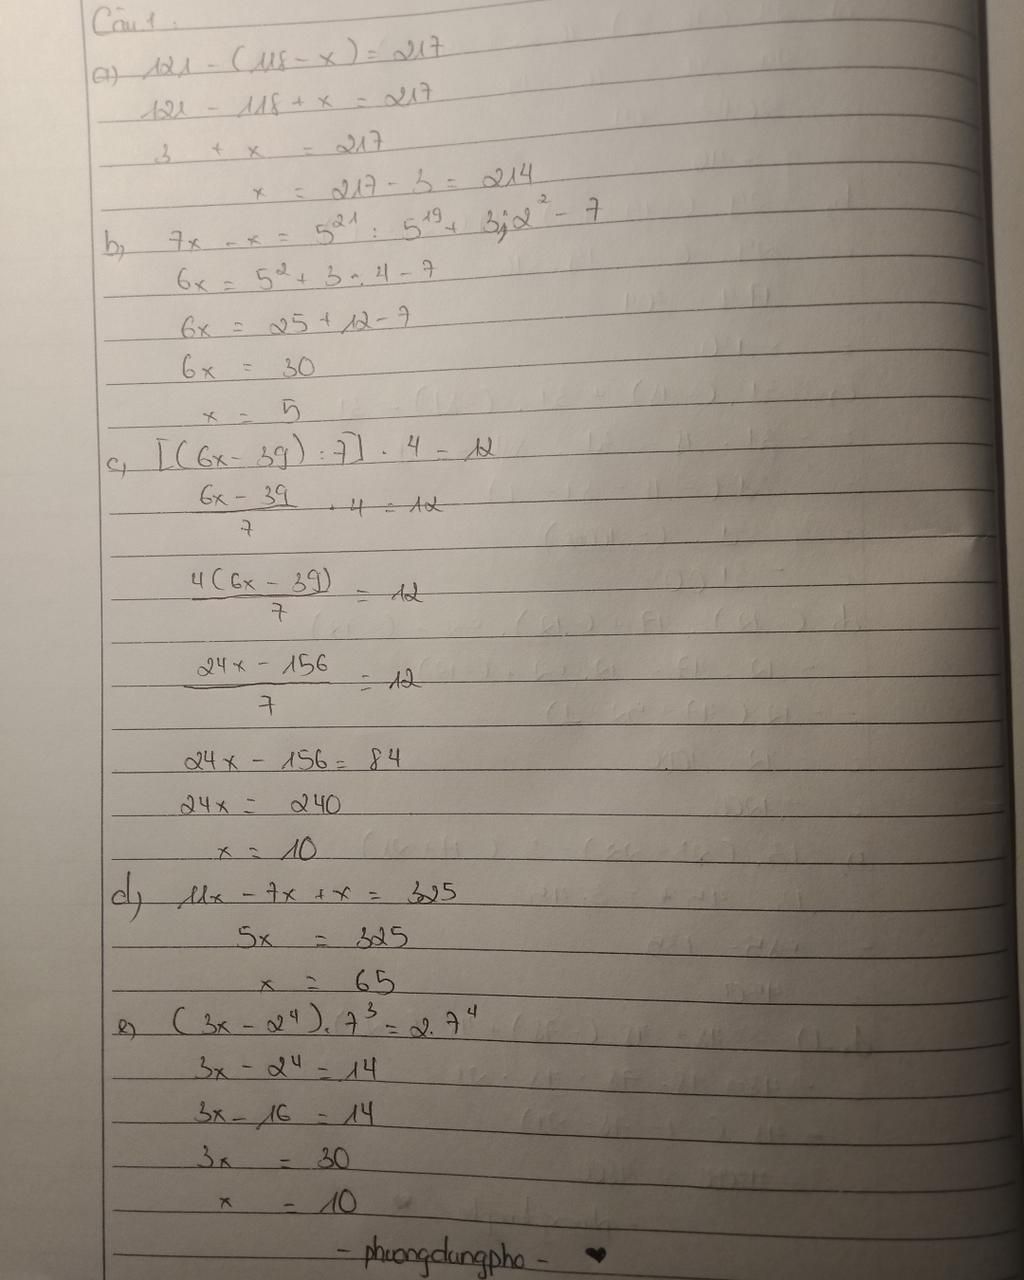 Câu 1:
a) 121 - (118 - x) = 217
121 - 118 + x = 217
3 + x = 217
x = 217 - 3 = 214
b, 7x - x = 5²¹ : 5¹⁹ + 3.2² - 7
6x = 5² + 3 . 4 - 7
6x = 25 + 12 - 7
6x = 30
x = 5
c, [(6x - 39) : 7] . 4 = 12
(6x - 39)/7 . 4 = 12
4(6x - 39)/7 = 12
(24x - 156)/7 = 12
24x - 156 = 84
24x = 240
x = 10
d, 11x - 7x + x = 325
5x = 325
x = 65
e, (3x - 2⁴). 7³ = 2. 7⁴
3x - 2⁴ = 14
3x - 16 = 14
3x = 30
x = 10
- phuongdungpho - ♥